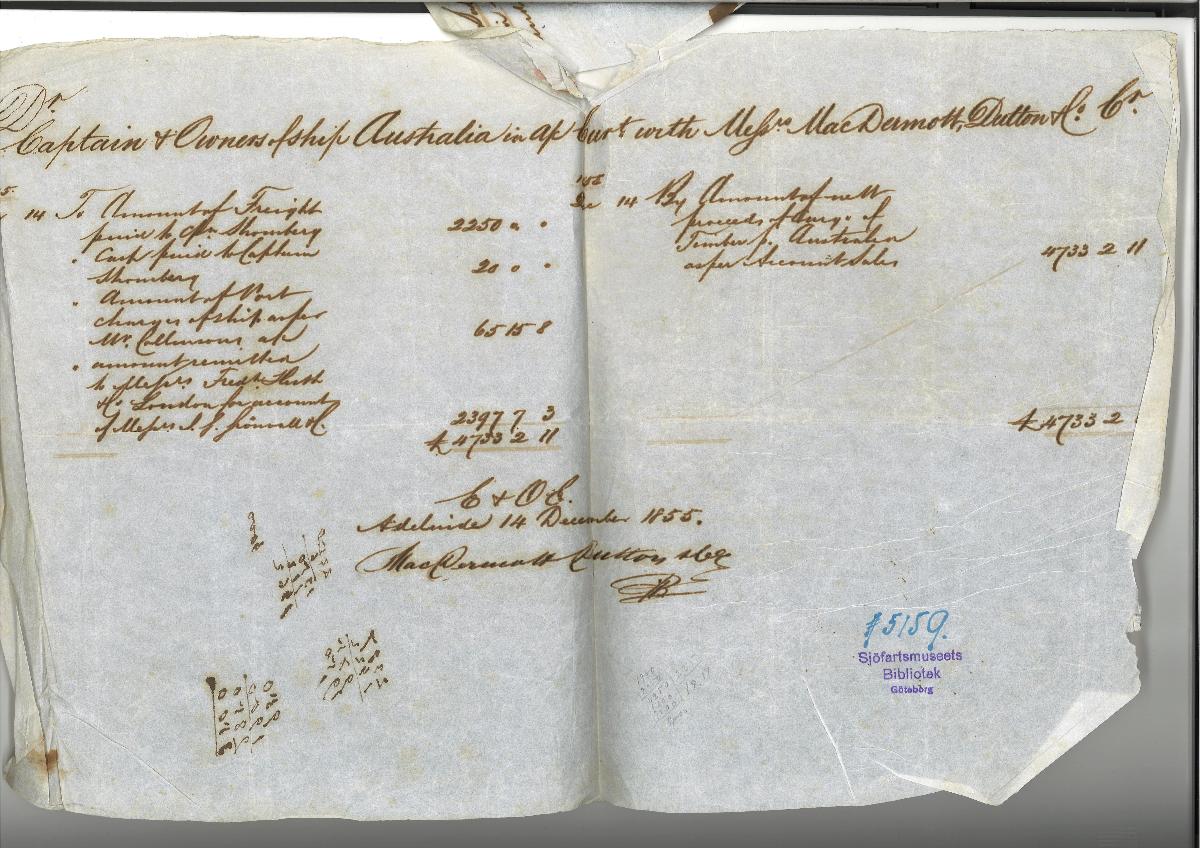 Dr.
Captain & Owners of ship Australia in a/c Curt. with Messrs MacDermott, Dutton & Co. Cr.
14 To Amount of Freight
paid to Cptn Stromberg 2250 " "
" Cash paid to Captain
Stromberg 20 " "
" Amount of Port
charges of ship as per
Mr. Collinsons a/c 65 15 8
" amount remitted
to Messrs Fredk. Huth
& Co London for account
of Messrs 2397 7 3
£ 4733 2 11
Dec 14 By Amount of nett
proceeds of Cargo of
Timber pr Australia
as per Account Sales 4733 2 11
£ 4733 2
E & O E.
Adelaide 14 December 1855.
MacDermott Dutton & Co
15159.
Sjöfartsmuseets
Bibliotek
Göteborg